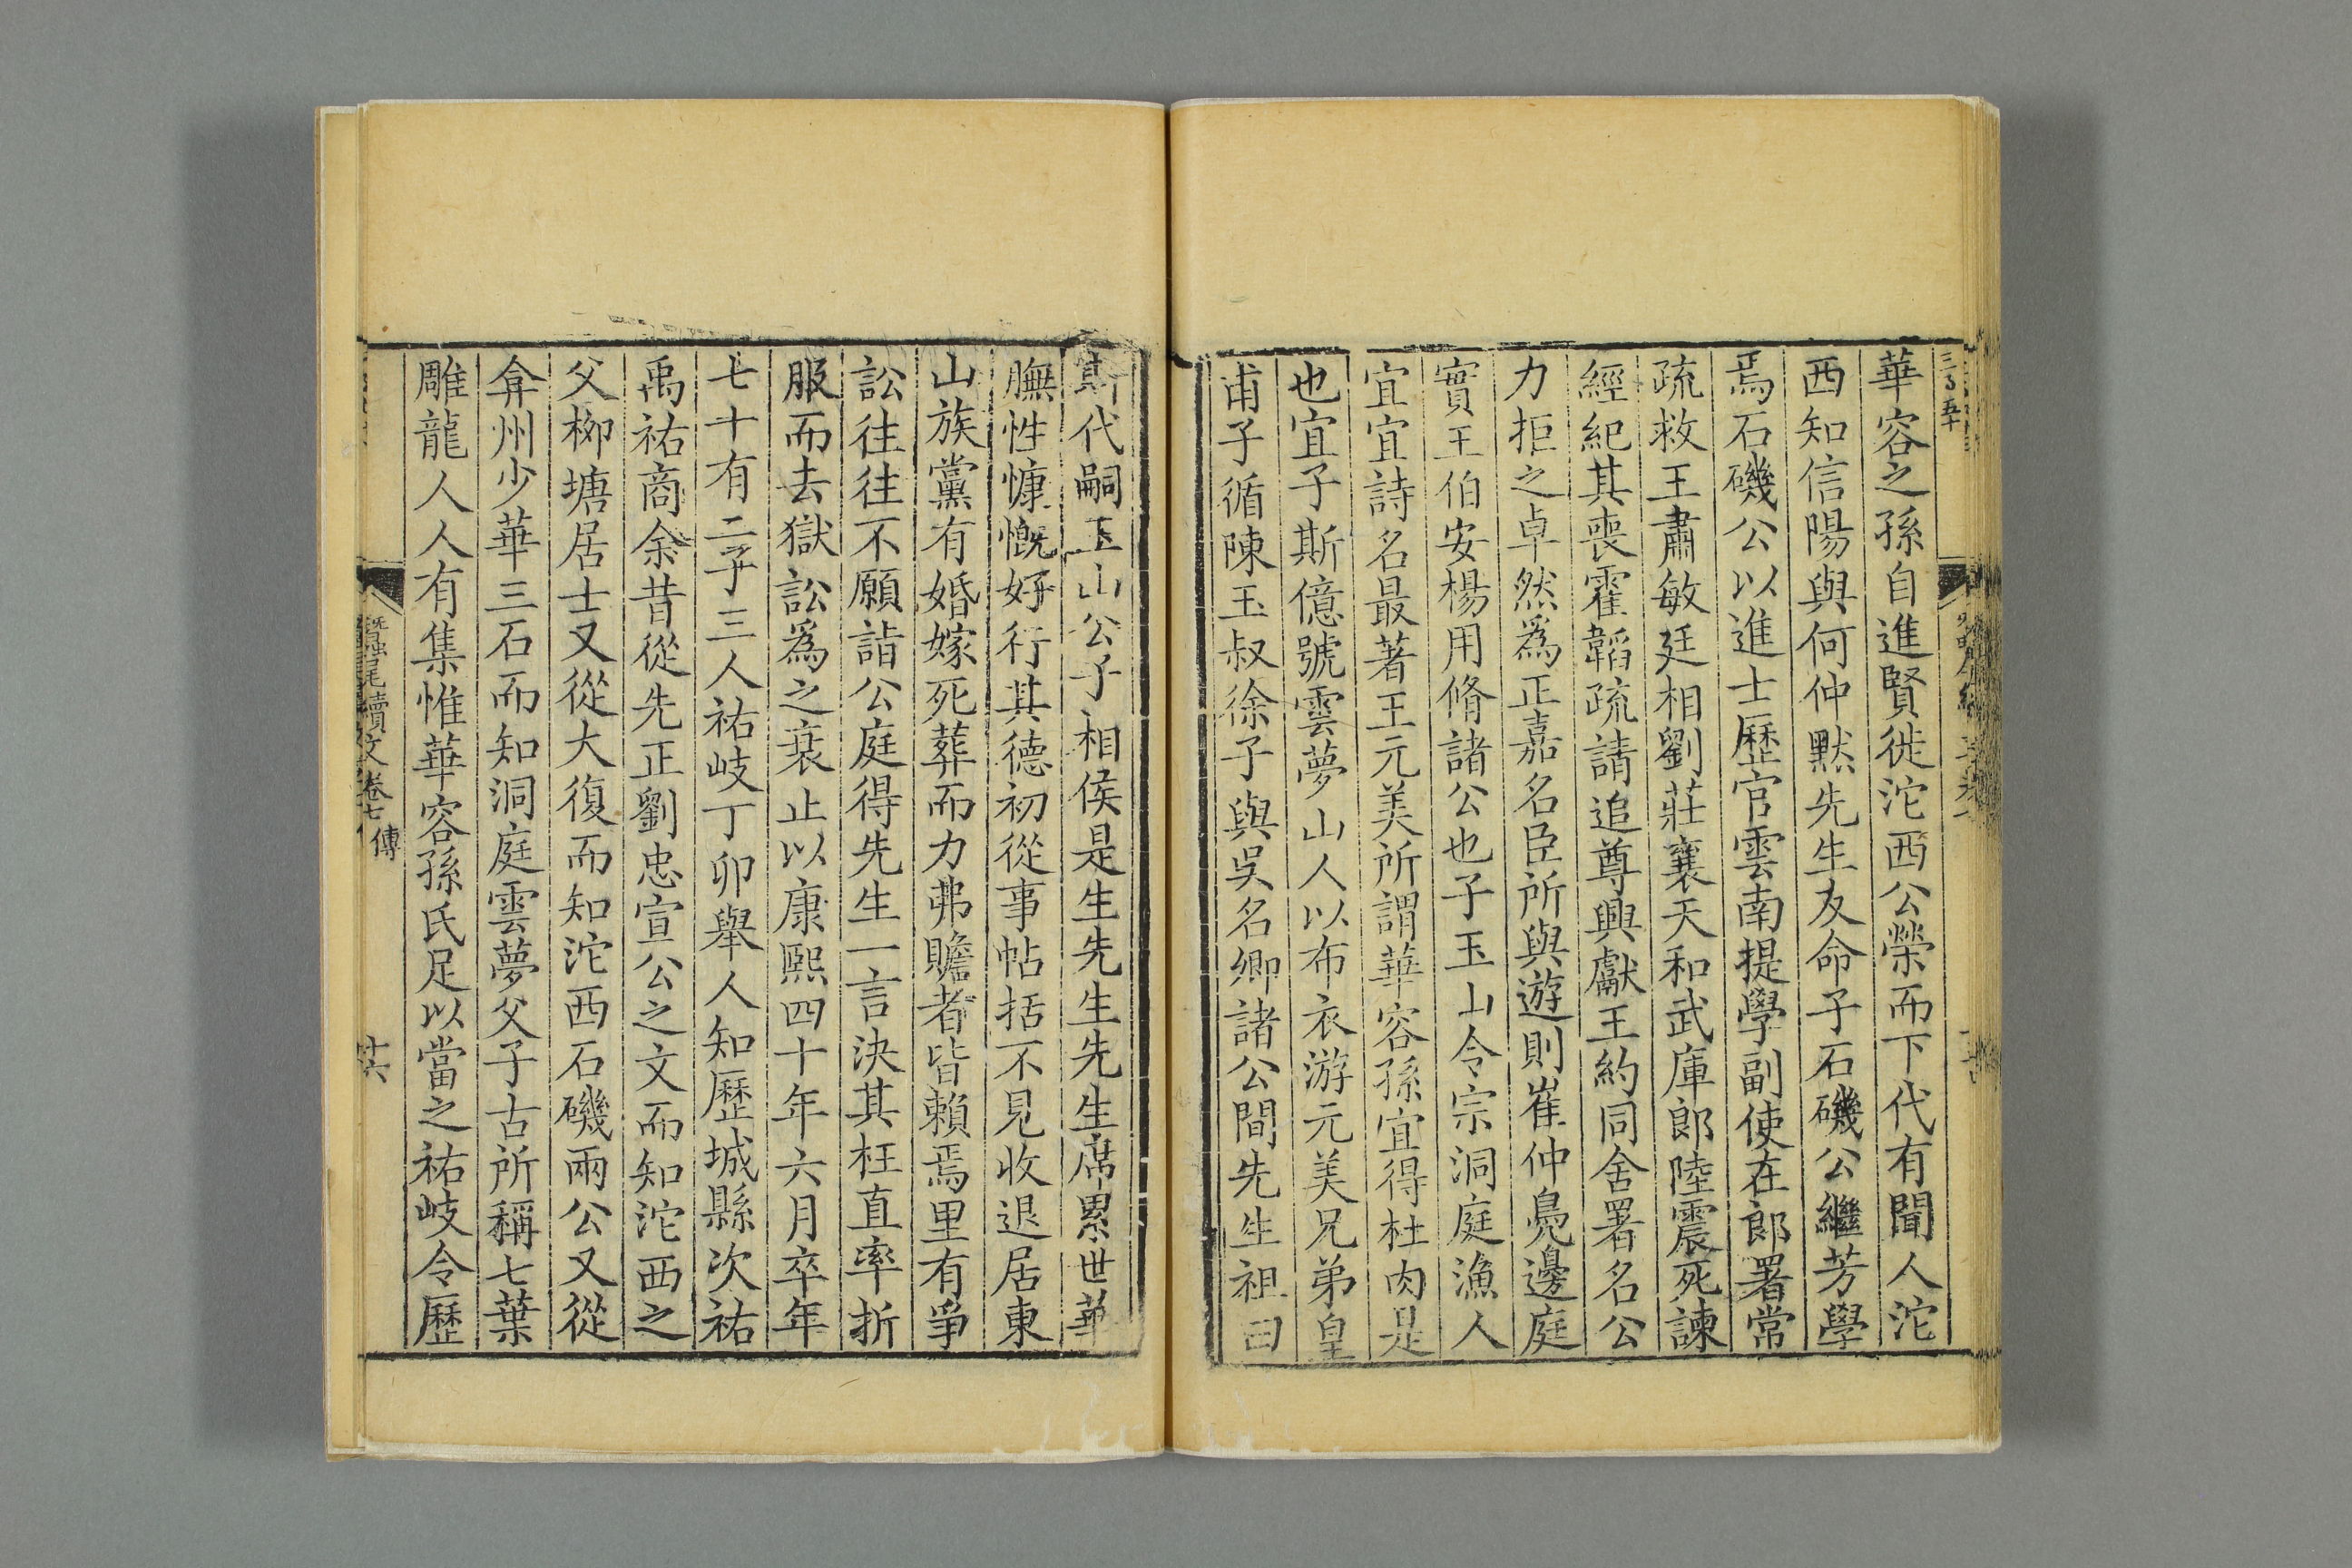 華容之孫自進賢徙沱西公榮而下代有聞人沱
西知信陽與何仲默先生友命子石磯公繼芳學
焉石磯公以進士歷官雲南提學副使在郎署常
疏救王肅敏廷相劉莊襄天和武庫郎陸震死諫
經紀其喪霍韜疏請追尊興獻王約同舍署名公
力拒之卓然為正嘉名臣所與遊則崔仲鳧邊庭
實王伯安楊用脩諸公也子玉山令宗洞庭漁人
宜宜詩名最著王元美所謂華容孫宜得杜肉是
也宜子斯億號雲夢山人以布衣游元美兄弟皇
甫子循陳玉叔徐子與吳名卿諸公間先生祖曰
斯代嗣玉山公子相侯是生先生先生席累世華
膴性慷慨好行其德初從事帖括不見收退居東
山族黨有婚嫁死葬而力弗贍者皆賴焉里有爭
訟往往不願詣公庭得先生一言決其枉直率折
服而去獄訟為之衰止以康熙四十年六月卒年
七十有二子三人祐岐丁卯舉人知歷城縣次祐
禹祐商余昔從先正劉忠宣公之文而知沱西之
父栁塘居士又從大復而知沱西石磯兩公又從
弇州少華三石而知洞庭雲夢父子古所稱七葉
雕龍人人有集惟華容孫氏足以當之祐岐令歷
蠶尾續文卷七 傳
十六